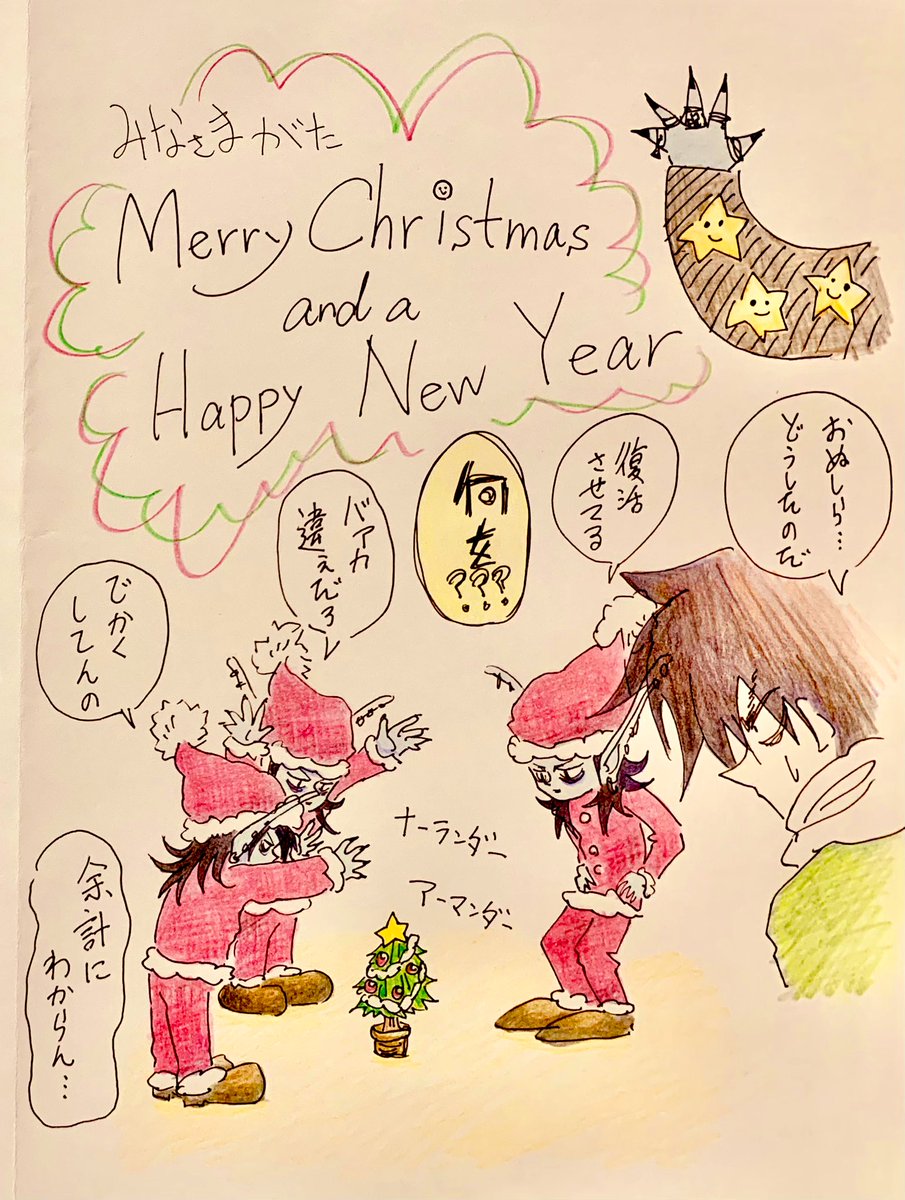 みなさまがた
Merry Christmas
and a
Happy New Year
おぬしら…
どうしたのだ
復活
させてる
何を
???
バアカ
違えだろ
でかく
してんの
ナーランダー
アーマンダー
余計に
わからん…